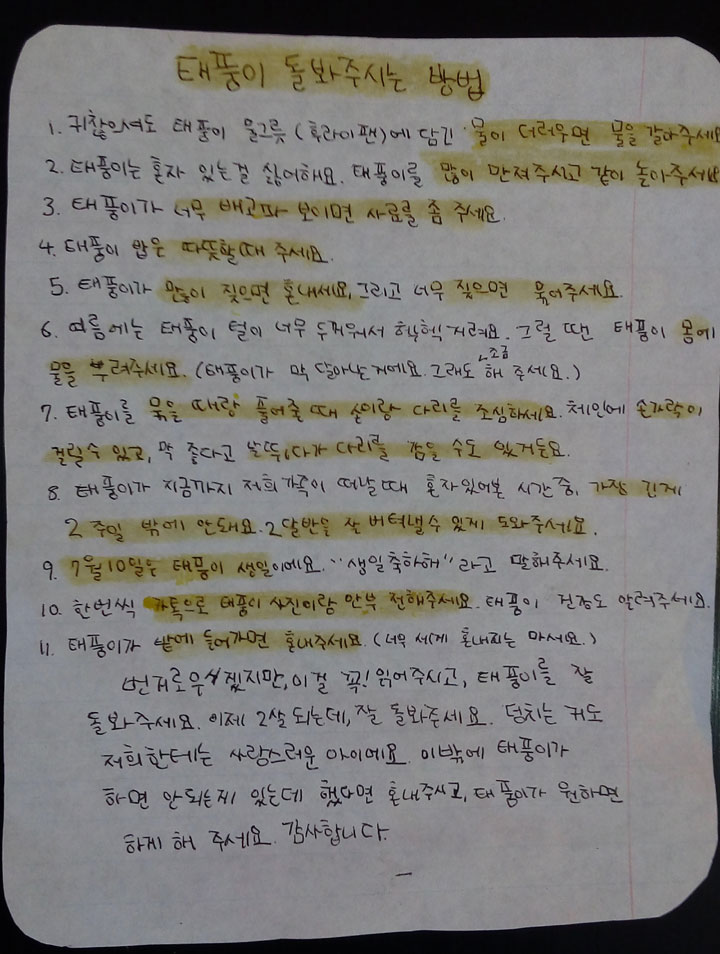 태풍이 돌봐주시는 방법
1. 귀찮으셔도 태풍이 물그릇(후라이팬)에 담긴 물이 더러우면 물을 갈아주세요
2. 태풍이는 혼자 있는걸 싫어해요. 태풍이를 많이 만져주시고 같이 놀아주세요
3. 태풍이가 너무 배고파 보이면 사료를 좀 주세요.
4. 태풍이 밥은 따뜻할때 주세요.
5. 태풍이가 많이 짖으면 혼내세요, 그리고 너무 짖으면 묶어주세요.
6. 여름에는 태풍이 털이 너무 두꺼워서 헉헉거려요. 그럴 땐 태풍이 몸에
물을 뿌려주세요. (태풍이가 막 달아나는거에요. 그래도 조금 해 주세요.)
7. 태풍이를 묶을 때랑 풀어줄때 손이랑 다리를 조심하세요. 체인에 손가락이
걸릴수 있고, 막 좋다고 날뛰다가 다리를 감을 수도 있거든요.
8. 태풍이가 지금까지 저희가족이 떠날때 혼자있어본 시간 중, 가장 긴게
2주일 밖에 안돼요. 2달반을 잘 버텨낼수 있게 도와주세요.
9. 7월10일은 태풍이 생일이에요. "생일축하해"라고 말해주세요.
10. 한번씩 카톡으로 태풍이 사진이랑 안부 전해주세요. 태풍이 건강도 알려주세요.
11. 태풍이가 밭에 들어가면 혼내주세요. (너무 세게 혼내지는 마세요.)
번거로우시겠지만, 이걸 꼭! 읽어주시고, 태풍이를 잘
돌봐주세요. 이제 2살 되는데, 잘 돌봐주세요. 덩치는 커도
저희한테는 사랑스러운 아이에요. 이밖에 태풍이가
하면 안되는게 있는데 했다면 혼내주시고, 태풍이가 원하면
하게 해 주세요. 감사합니다.